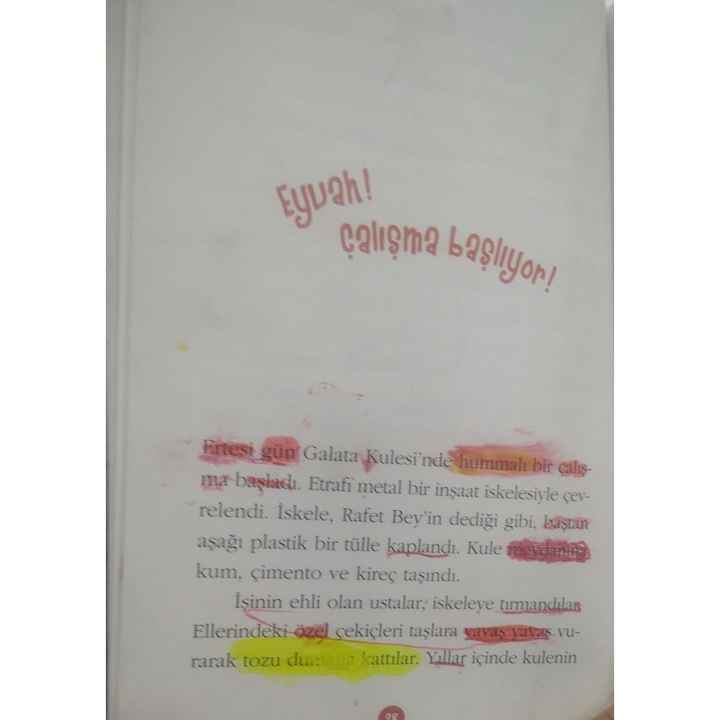 Eyvah!
çalışma başlıyor!
Ertesi gün Galata Kulesi'nde hummalı bir çalış-
ma başladı. Etrafı metal bir inşaat iskelesiyle çev-
relendi. İskele, Rafet Bey'in dediği gibi, baştan
aşağı plastik bir tülle kaplandı. Kule meydanına
kum, çimento ve kireç taşındı.
İşinin ehli olan ustalar, iskeleye tırmandılar.
Ellerindeki özel çekiçleri taşlara yavaş yavaş vu-
rarak tozu dumana kattılar. Yıllar içinde kulenin